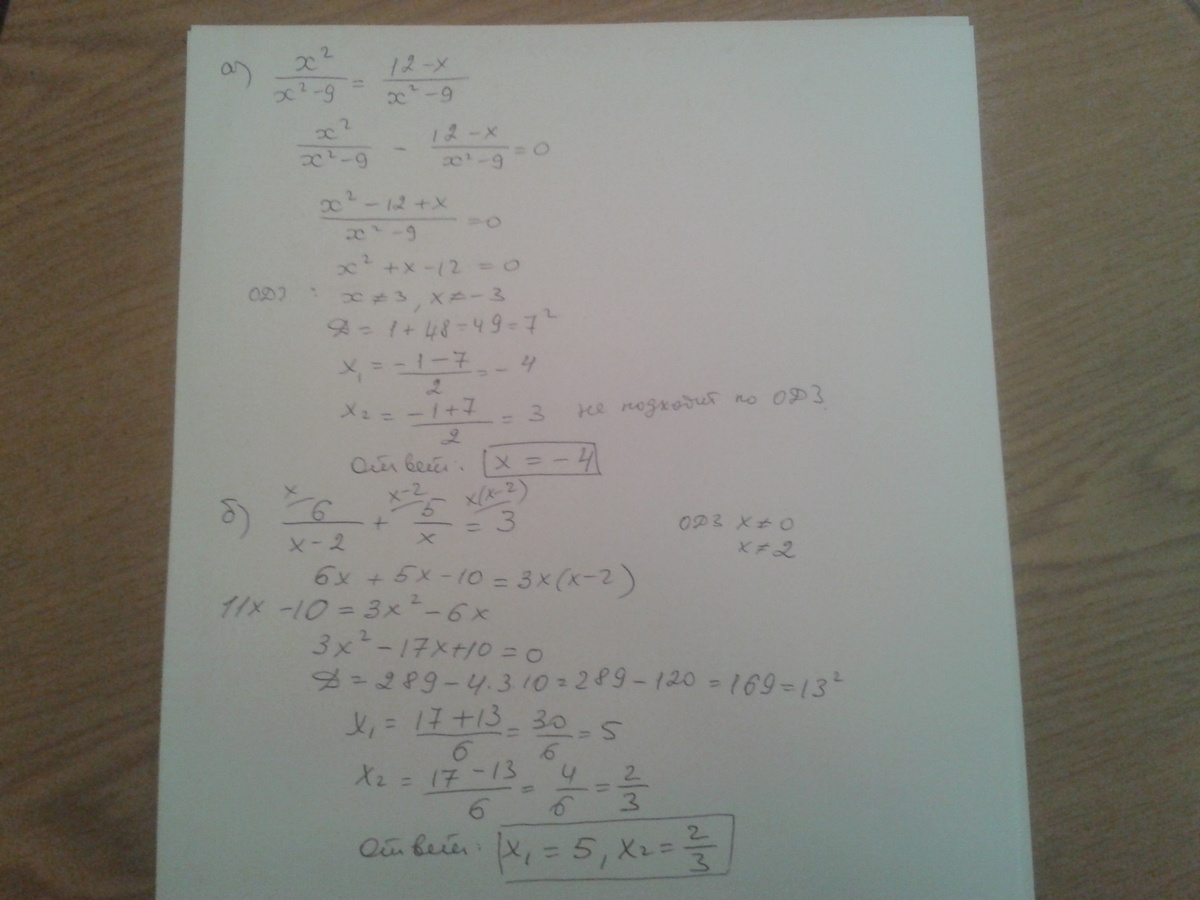 а) x²/(x²-9) = (12-x)/(x²-9)
x²/(x²-9) - (12-x)/(x²-9) = 0
(x²-12+x)/(x²-9) = 0
x²+x-12 = 0
ОДЗ: x≠3, x≠-3
D = 1+48=49=7²
x₁ = (-1-7)/2 = -4
x₂ = (-1+7)/2 = 3 не подходит по ОДЗ.
Ответ: x = -4
x x-2 x(x-2)
б) 6/(x-2) + 5/x = 3 ОДЗ x≠0
x≠2
6x + 5x -10 = 3x(x-2)
11x -10 = 3x²-6x
3x²-17x+10 = 0
D = 289-4·3·10=289-120=169=13²
x₁ = (17+13)/6 = 30/6 = 5
x₂ = (17-13)/6 = 4/6 = 2/3
Ответ: x₁ = 5, x₂ = 2/3